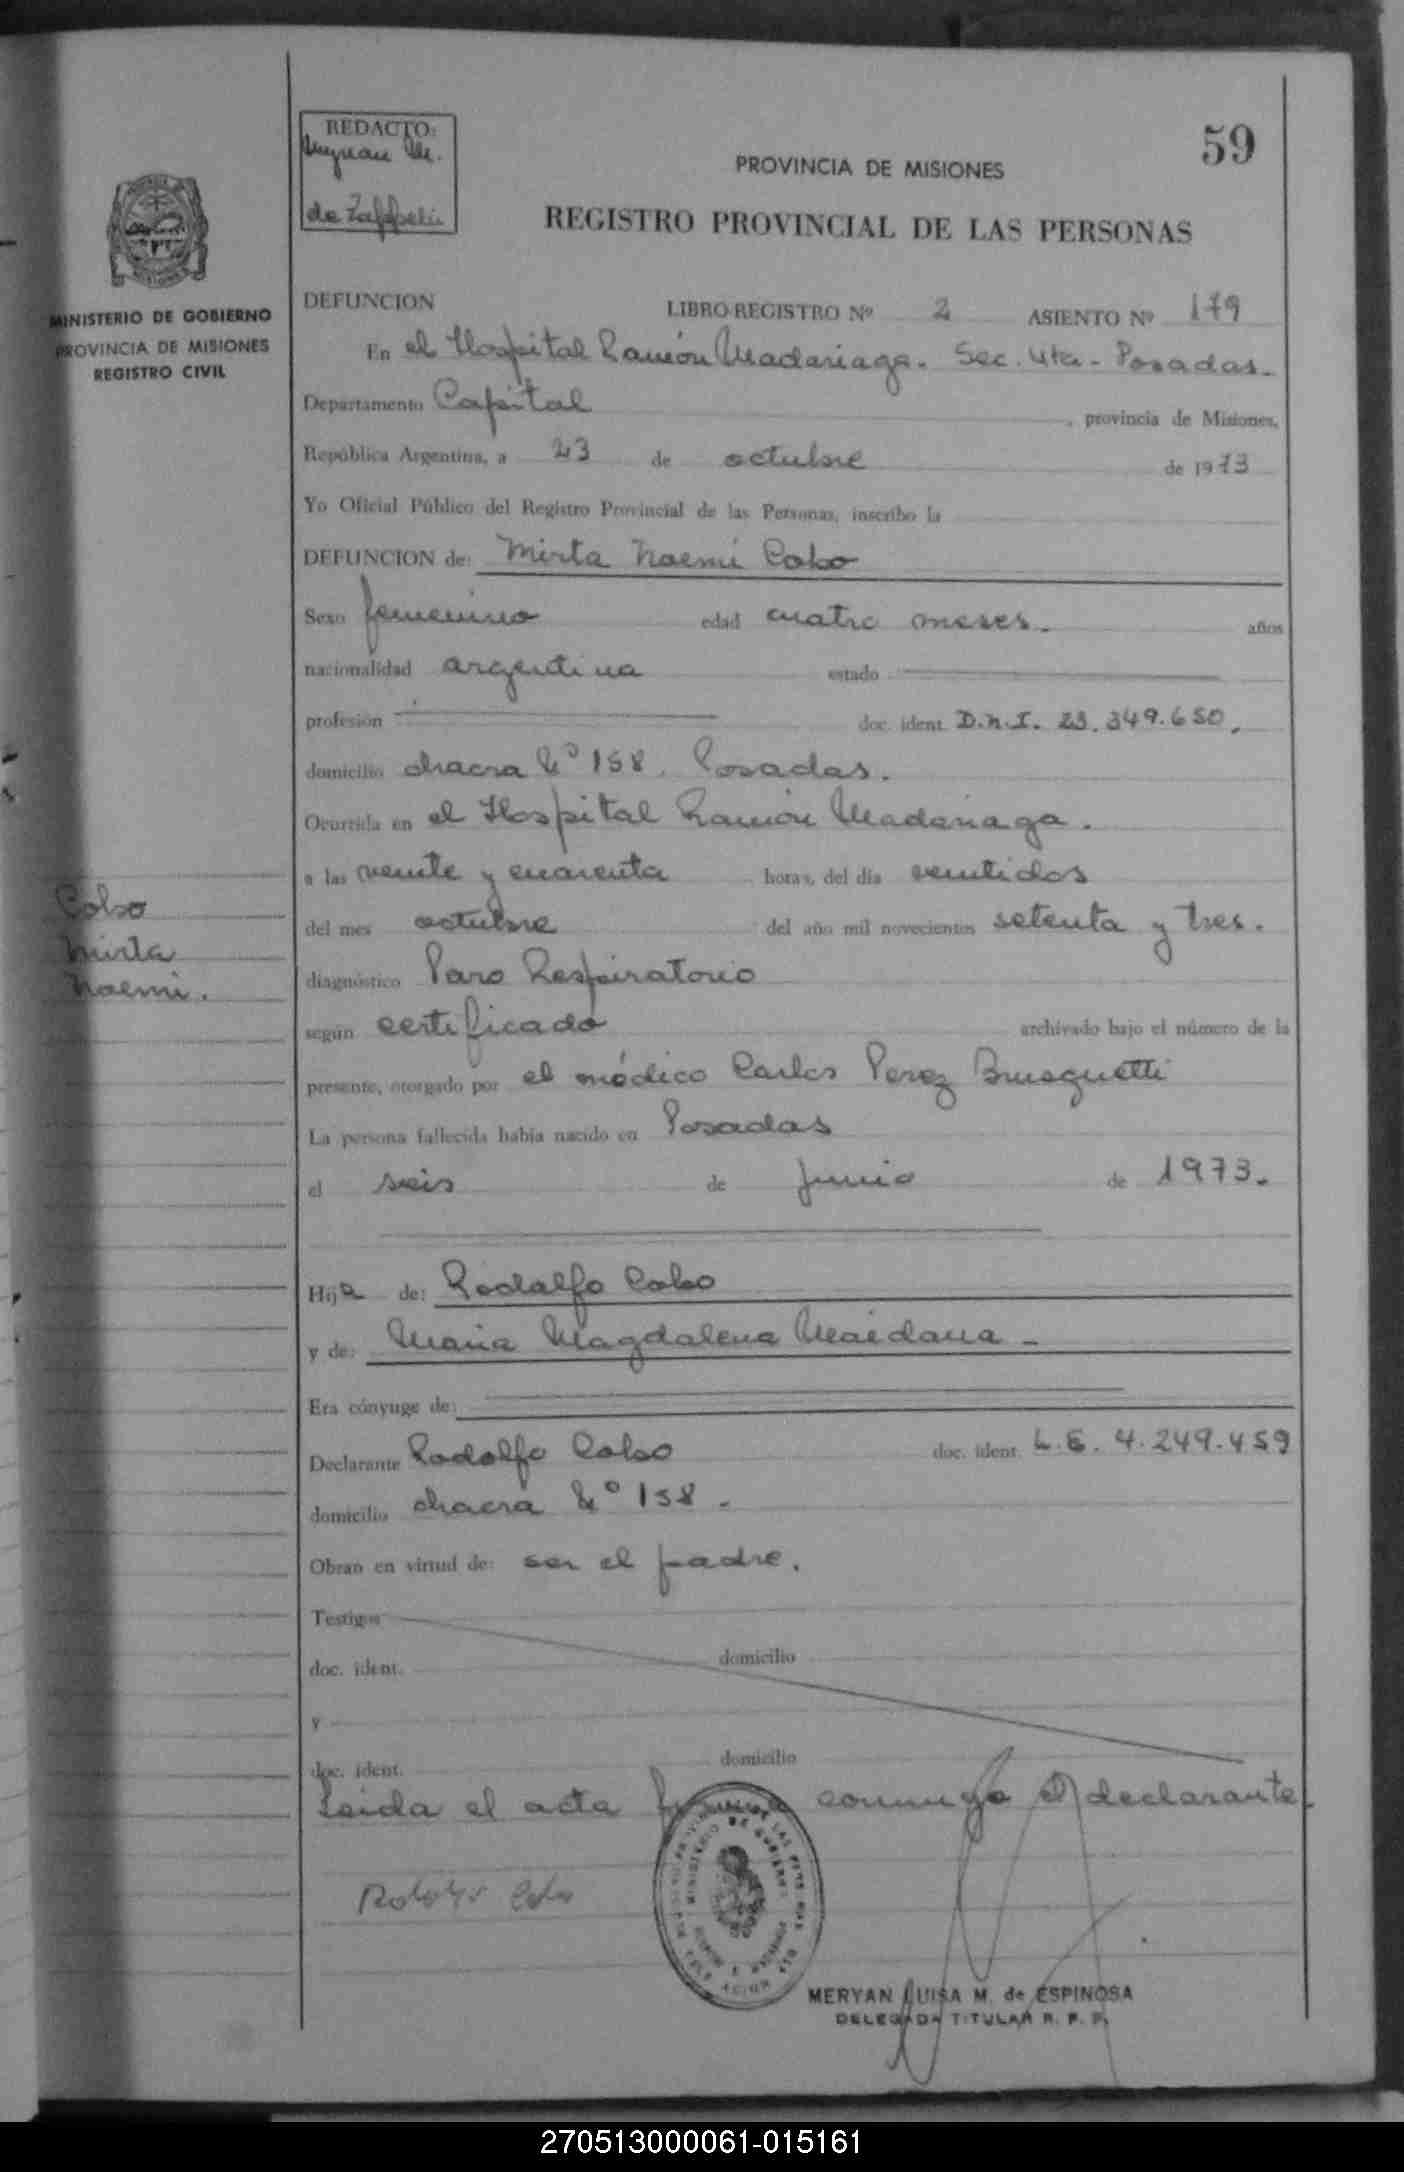 REDACTO:
de Zappelli
59
PROVINCIA DE MISIONES
REGISTRO PROVINCIAL DE LAS PERSONAS
MINISTERIO DE GOBIERNO
PROVINCIA DE MISIONES
REGISTRO CIVIL
DEFUNCION LIBRO-REGISTRO Nº 2 ASIENTO Nº 179
En el Hospital Ramón Madariaga. Sec. 4ta - Posadas.
Departamento Capital, provincia de Misiones,
República Argentina, a 23 de octubre de 1973
Yo Oficial Público del Registro Provincial de las Personas, inscribo la
DEFUNCION de: Mirta Noemi Cobo
Sexo femenino edad cuatro meses. años
nacionalidad argentina estado
profesión doc. ident. D.N.I. 23.349.650.
domicilio chacra Nº 158. Posadas.
Ocurrida en el Hospital Ramón Madariaga.
a las veinte y cuarenta horas, del día veintidos
del mes octubre del año mil novecientos setenta y tres.
diagnóstico Paro Respiratorio
según certificado archivado bajo el número de la
presente, otorgado por el médico Carlos Perez
La persona fallecida había nacido en Posadas
el seis de junio de 1973.
Cobo
Mirta
Noemi.
Hija de: Rodolfo Cobo
y de: Maria Magdalena Maidana -
Era cónyuge de:
Declarante Rodolfo Cobo doc. ident. L.E. 4.249.459
domicilio chacra Nº 158.
Obran en virtud de: ser el padre.
Testigos
doc. ident. domicilio
y
doc. ident. domicilio
Leida el acta conmigo el declarante.
Rodolfo Cobo
MERYAN LUISA M. de ESPINOSA
DELEGADA TITULAR R. P. P.
270513000061-015161